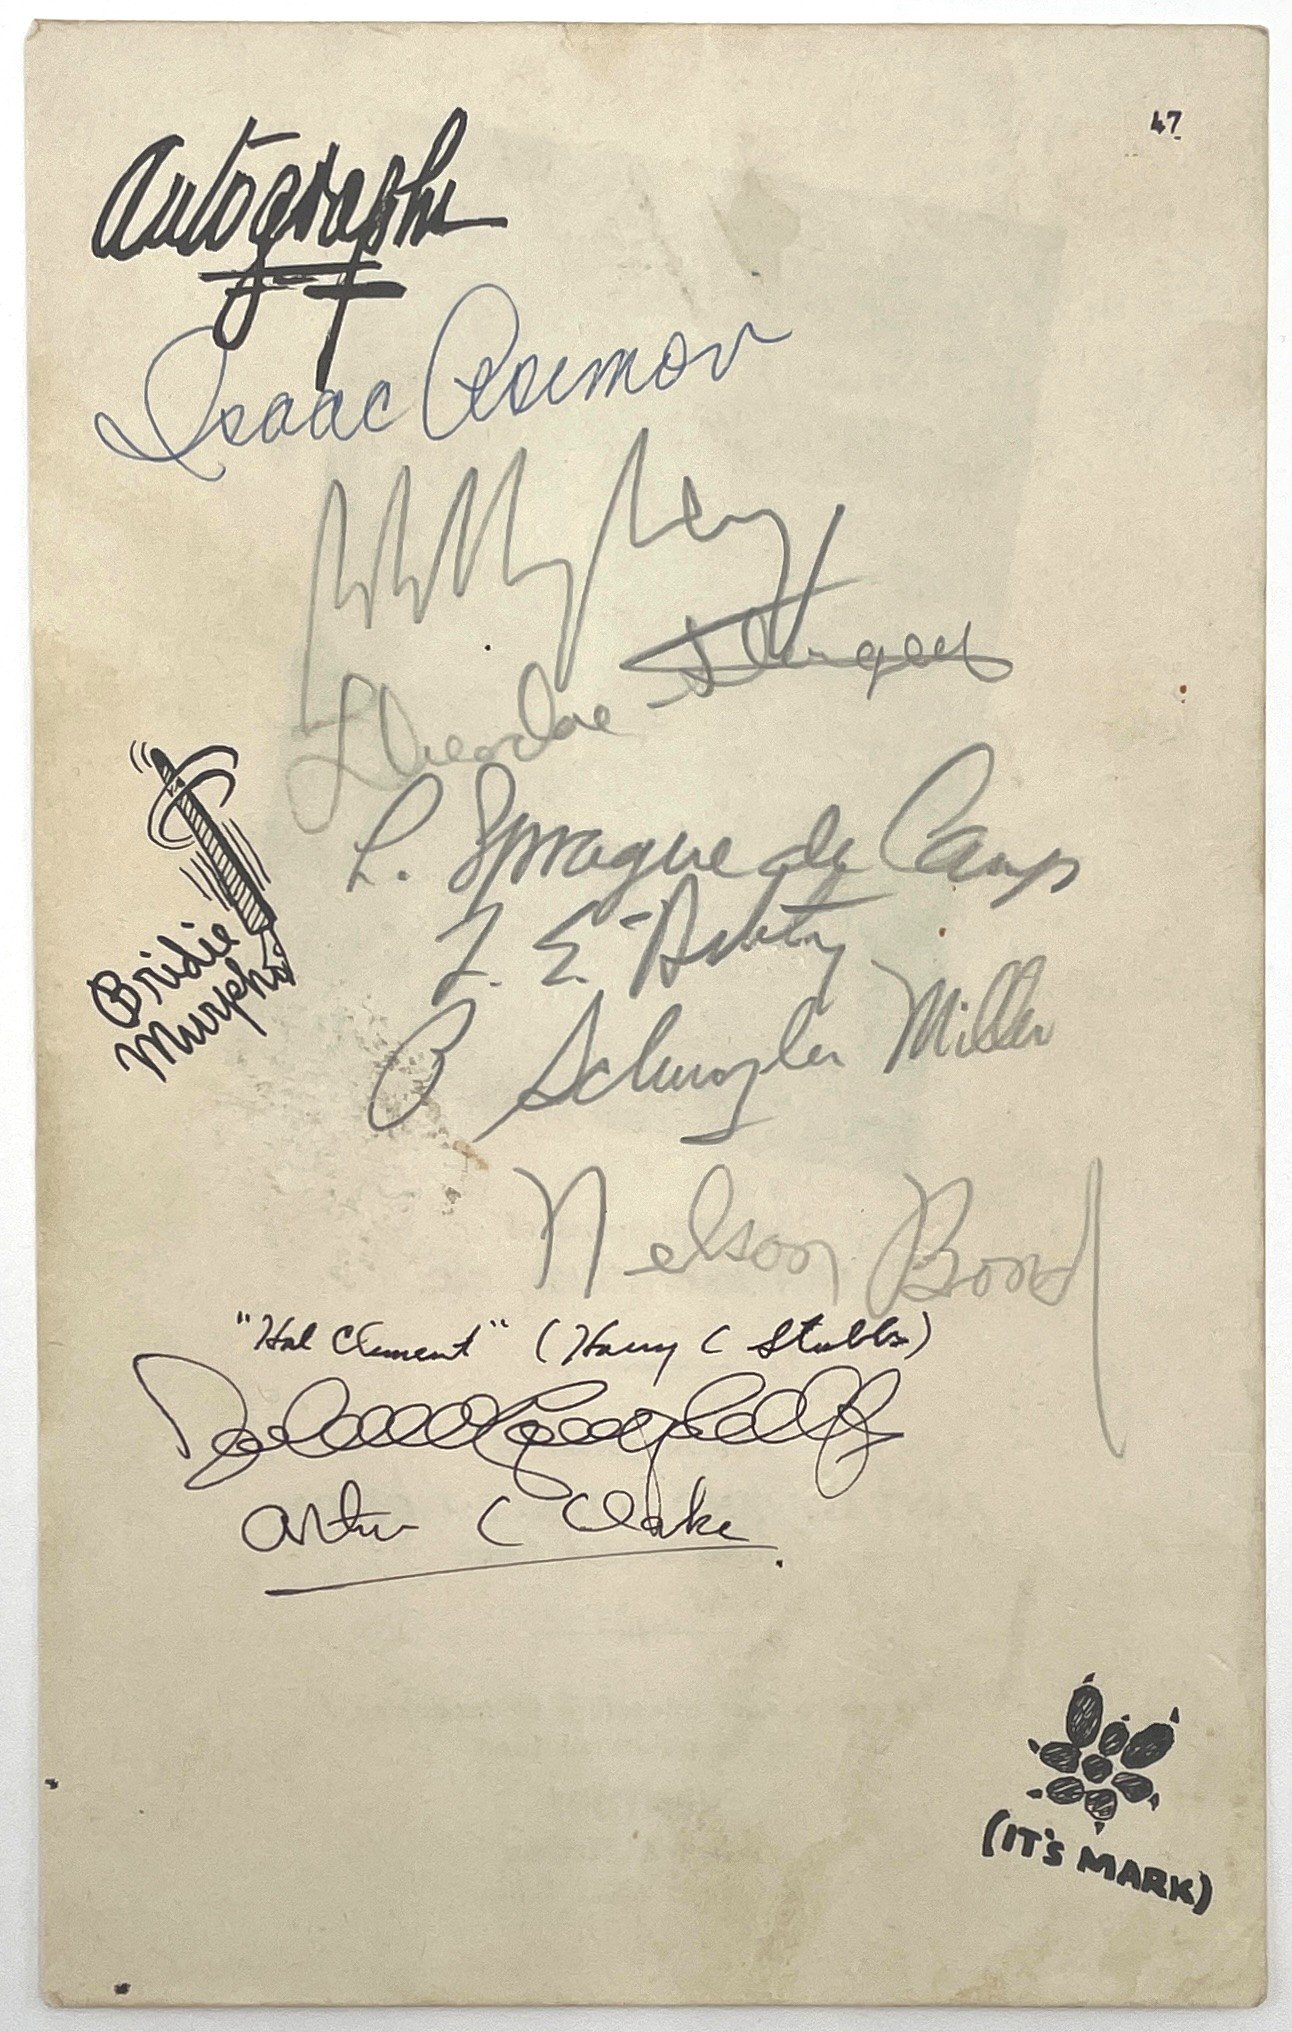 47
Autographs
Isaac Asimov
Willy Ley
Theodore Sturgeon
L. Sprague de Camp
T. E. Dikty
P Schuyler Miller
Bridie
Murphy
Nelson Bond
"Hal Clement" (Harry C Stubbs)
Arthur C Clarke
(IT'S MARK)